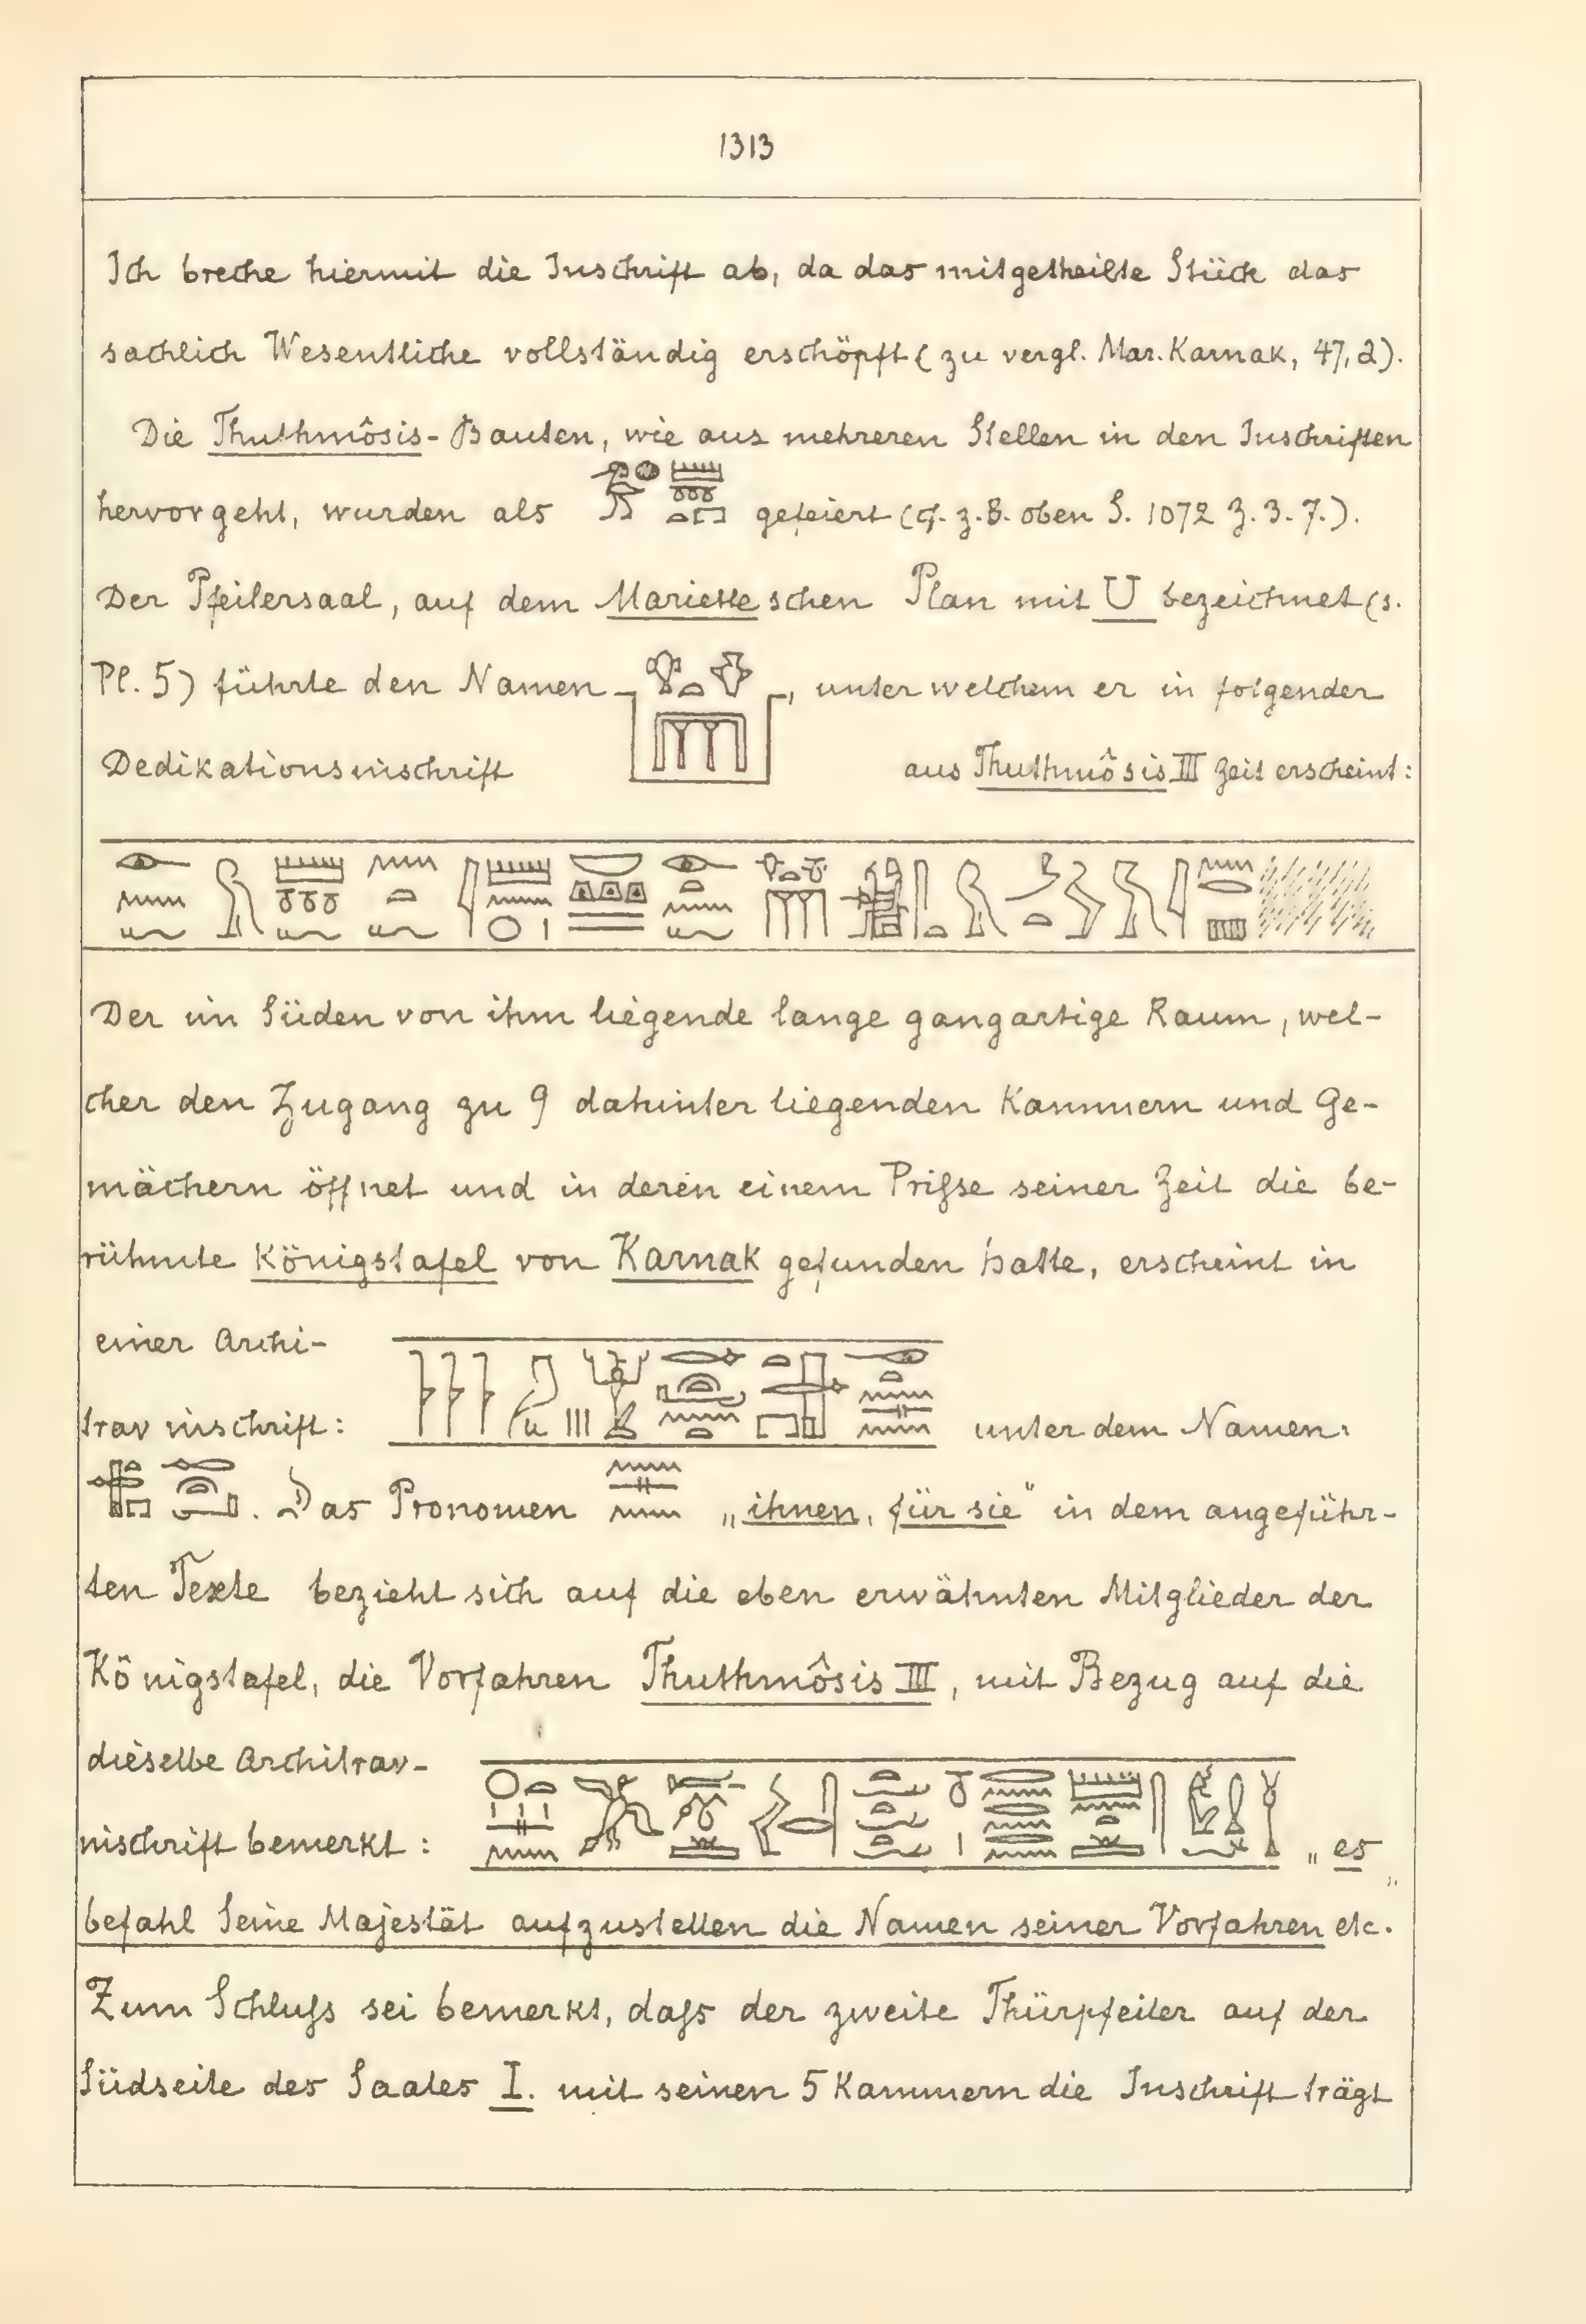 1313
Ich breche hiermit die Inschrift ab, da das mitgetheilte Stück das
sachlich Wesentliche vollständig erschöpft (zu vergl. Mar. Karnak, 47,2).
Die Thuthmôsis-Bauten, wie aus mehreren Stellen in den Inschriften
hervorgeht, wurden als gefeiert (cf. z.B. oben S. 1072 Z. 3. 7.).
Der Pfeilersaal, auf dem Marietteschen Plan mit U bezeichnet (s.
Pl. 5) führte den Namen , unter welchem er in folgender
Dedikationsinschrift aus Thuthmôsis III Zeit erscheint:
Der im Süden von ihm liegende lange gangartige Raum, wel-
cher den Zugang zu 9 dahinter liegenden Kammern und Ge-
mächern öffnet und in deren einem Prisse seiner Zeit die be-
rühmte Königstafel von Karnak gefunden hatte, erscheint in
einer Archi-
travinschrift: unter dem Namen:
. Das Pronomen „ihnen, für sie" in dem angeführ-
ten Texte bezieht sich auf die eben erwähnten Mitglieder der
Königstafel, die Vorfahren Thuthmôsis III, mit Bezug auf die
dieselbe Architrav-
inschrift bemerkt: „es
befahl Seine Majestät aufzustellen die Namen seiner Vorfahren" etc.
Zum Schluss sei bemerkt, dass der zweite Thürpfeiler auf der
Südseite des Saales I. mit seinen 5 Kammern die Inschrift trägt